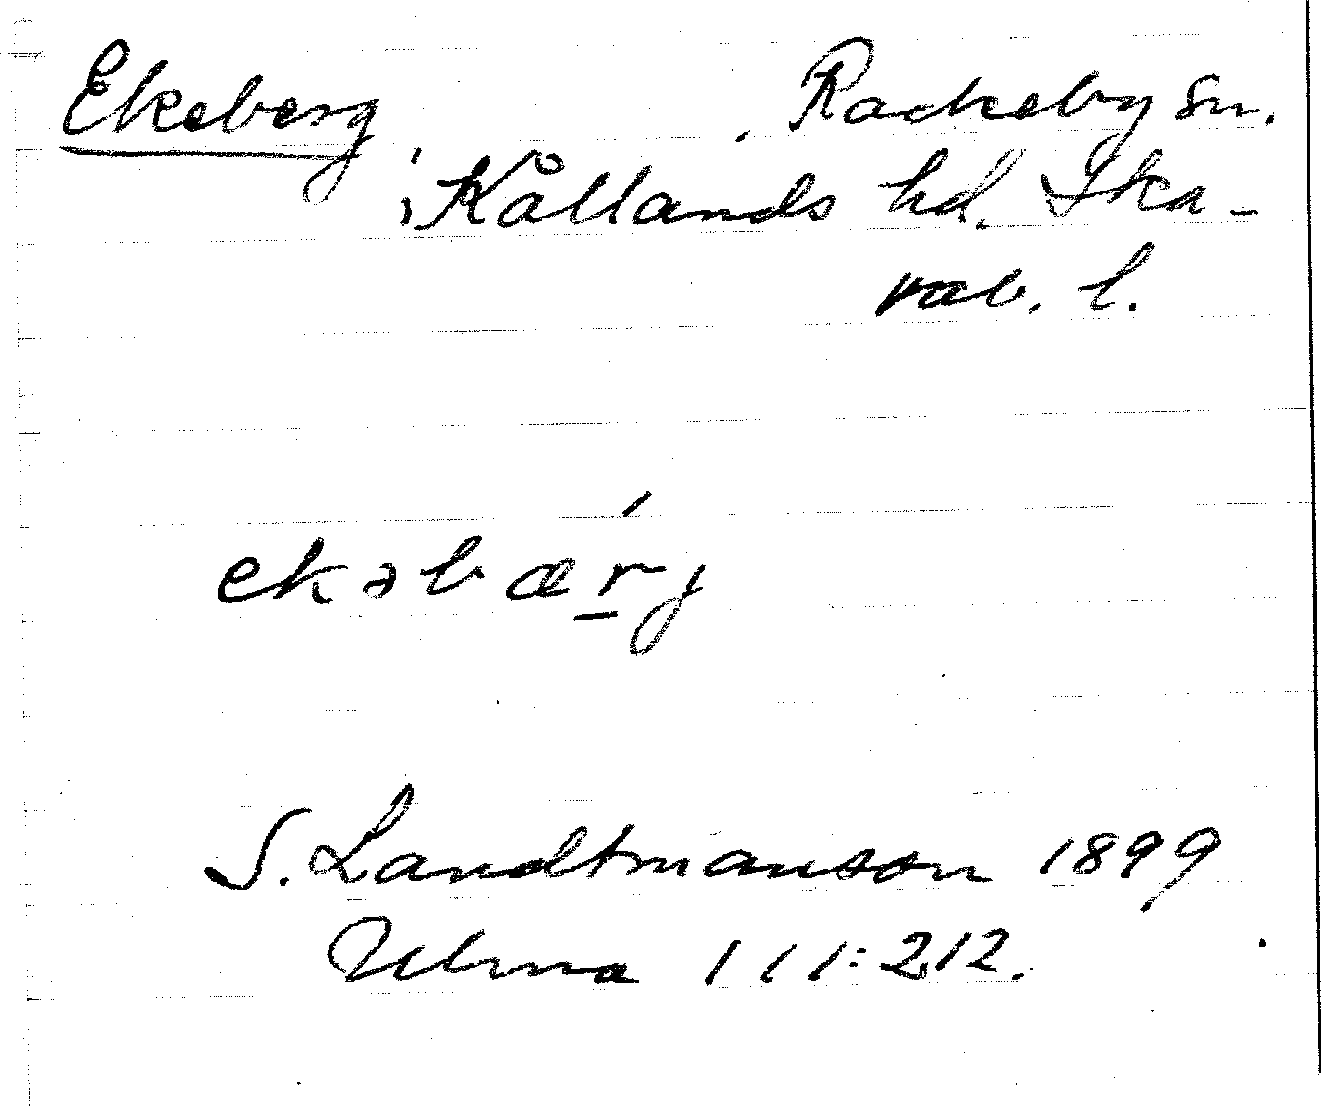 Ekeberg Rackeby sn.
Kållands hd. Ska-
rab. l.
ekəbǽrj
S. Landtmanson 1899
Ulma 111:212.